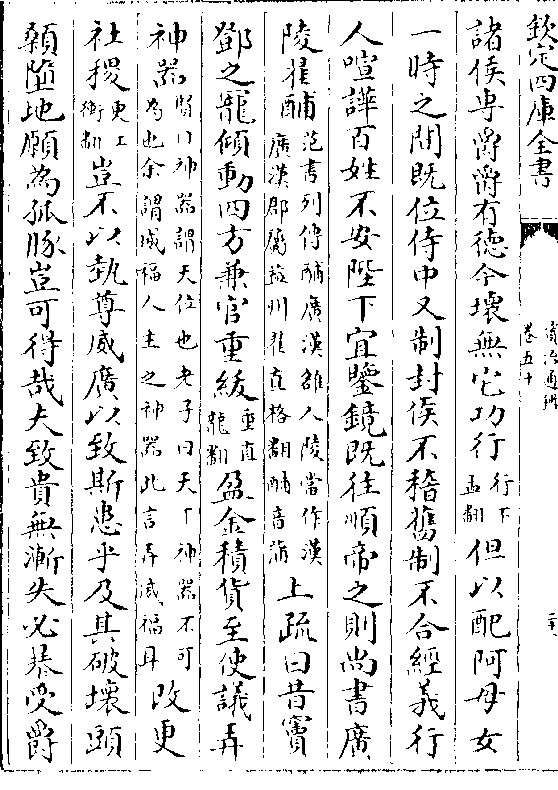 欽定四庫全書
資治通鑑
卷五十
諸侯專爵爵有德今壞無它功行行下孟翻但以配阿母女
一時之間既位侍中又制封侯不稽舊制不合經義行
人喧譁百姓不安陛下宜鑒鏡既往順帝之則尚書廣
陵翟酺范書列傳酺廣漢雒人陵當作漢廣漢郡屬益州翟直格翻酺音蒲上疏曰昔竇
鄧之寵傾動四方兼官重紱重直龍翻盈金積貨至使議弄
神器賢曰神器謂天位也老子曰天下神器不可為也余謂威福人主之神器此言弄威福耳改更
社稷更工衡翻豈不以埶尊威廣以致斯患乎及其破壞頭
顙墮地願為孤豚豈可得哉夫致貴無漸失必暴受爵